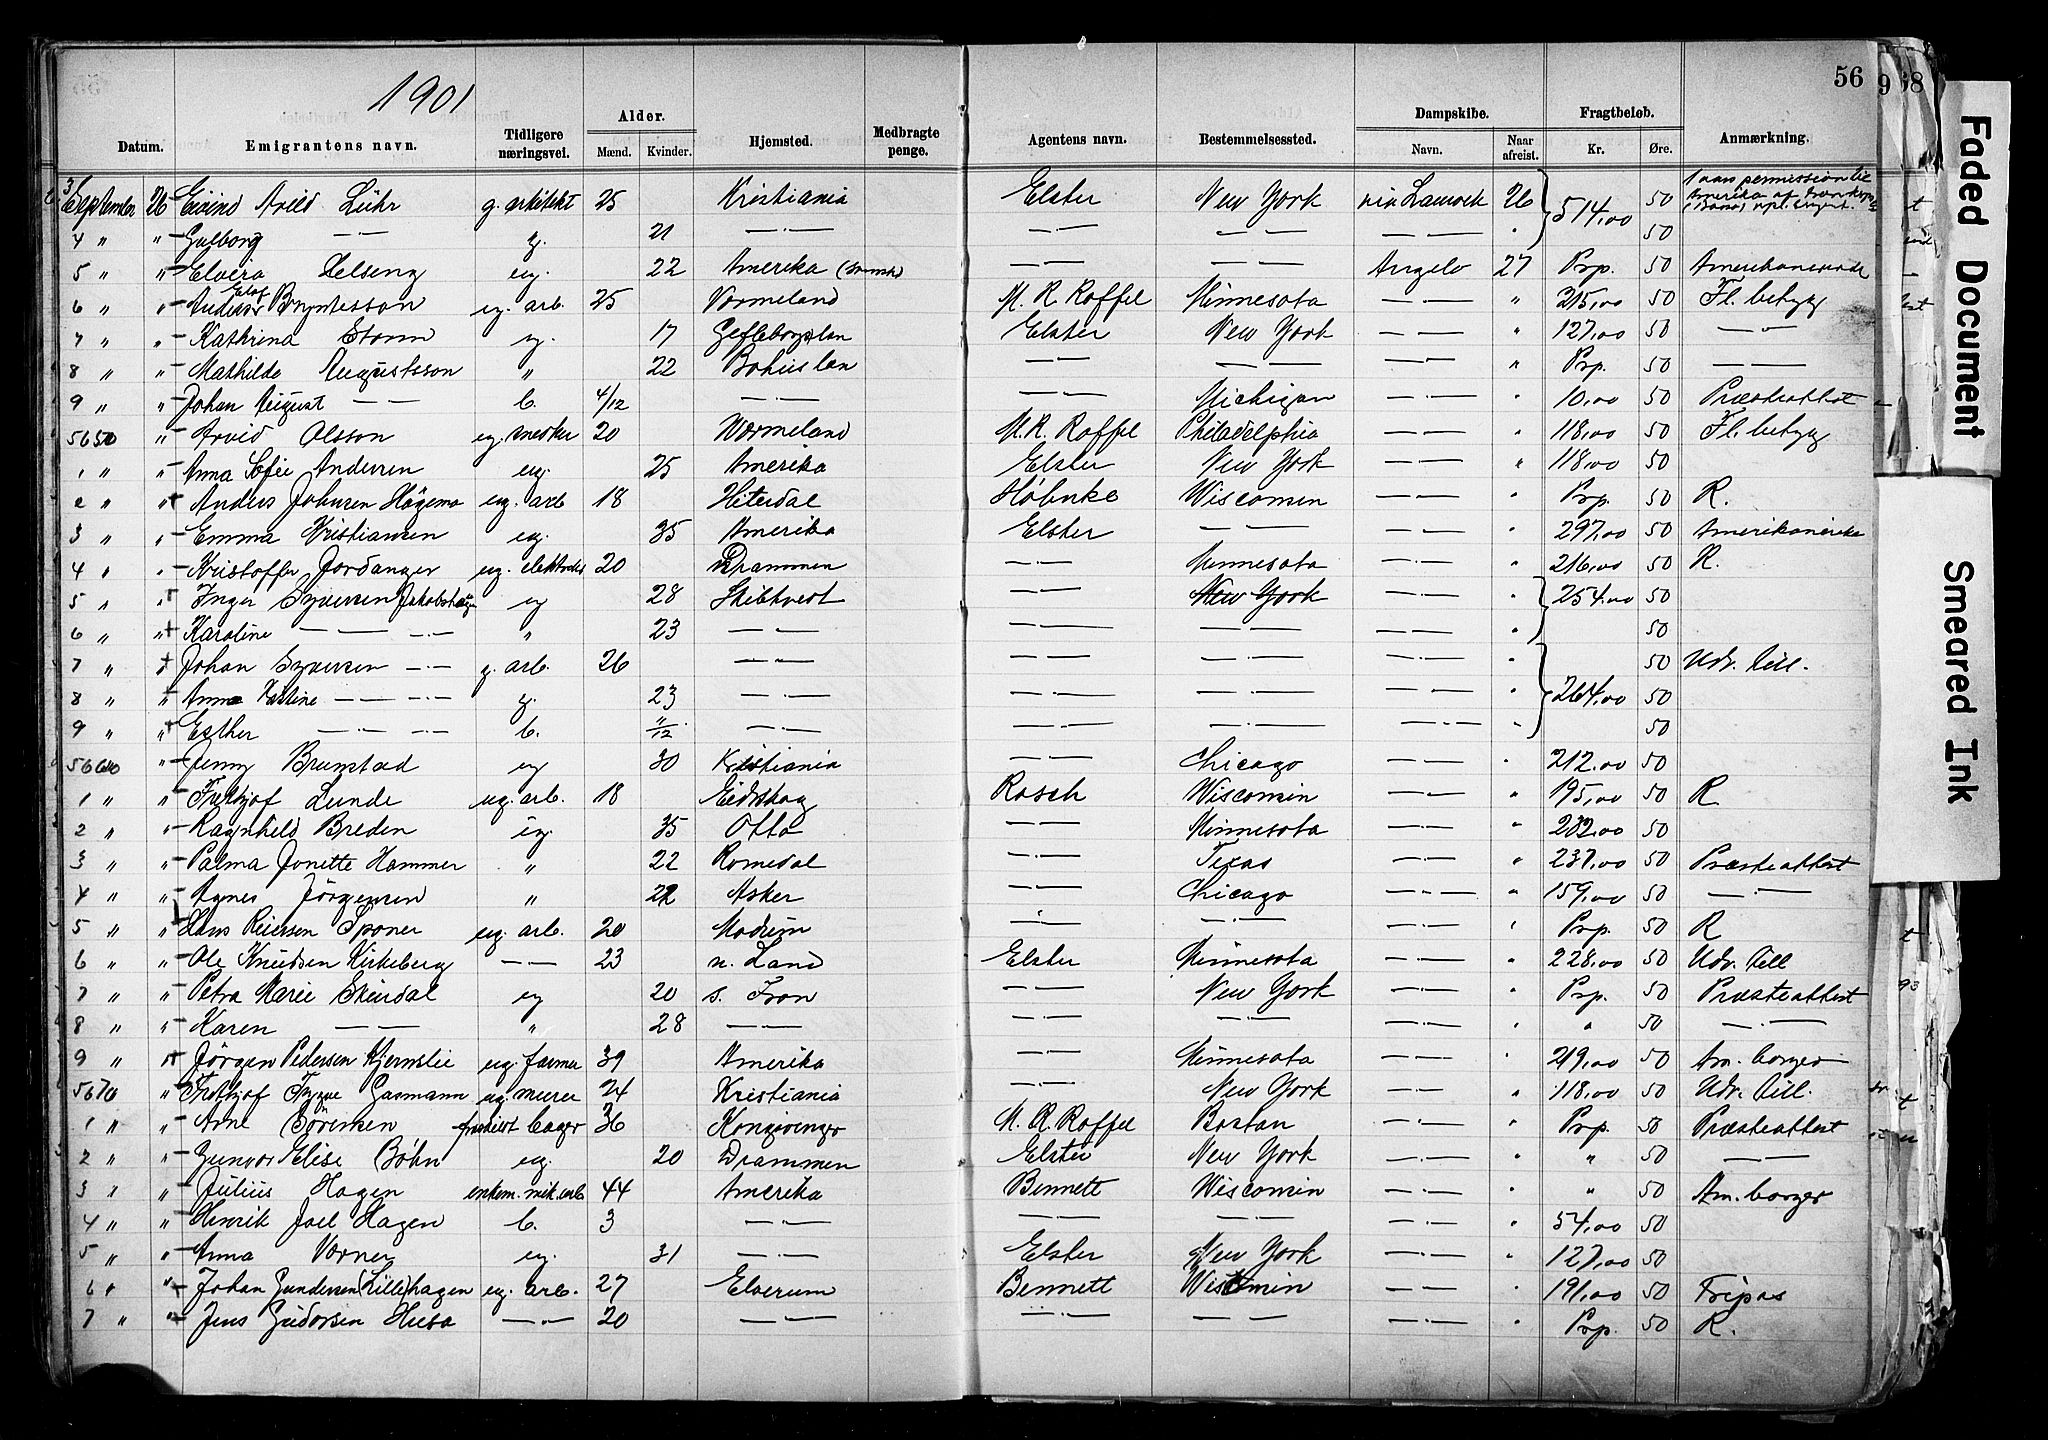 1901
56
9 68
Datum. Emigrantens navn. Tidligere næringsvei. Alder. Mænd. Kvinder. Hjemsted. Medbragte penge. Agentens navn. Bestemmelsessted. Dampskibe. Navn. Naar afreist. Fragtbeløb. Kr. Øre. Anmærkning.
3 September 26 Eivind Arild Lühr g. arkitekt 25 Kristiania Elster New York 26 514,00 50 Amerika
4 " " Gulborg — — g. 21 — · — — · — — — — — " 50
5 " " Elvira Helseng ug. 22 Amerika — · — — — Angelo 27 Prp. 50
6 " " Anders Olof Bryntesson ug. arb. 25 Vermeland M. R. Roffel Minnesota — · — " 215,00 50 Fl. betyg
7 " " Kathrina Storm ug. 17 Gefleborgslan Elster New York — · — " 127,00 50 — " —
8 " " Mathilde Augustsson " 22 Bohuslan — — — · — — · — " Prp. 50 — · —
9 " " Johan August — — b. 4/12 — · — — — Michigan — · — " 10,00 50 Præsteattest
5650 " Arvid Olsson ug. snedker 20 Wermeland M. R. Roffel Philadelphia — · — " 118,00 50 Fl. betyg
1 " " Anna Sofie Andersen ug. 25 Amerika Elster New York — · — " 118,00 50
2 " " Anders Johnsen Högemo ug. arb 18 Hiterdal Høbnke Wisconsin — · — " Prp. 50 R.
3 " " Emma Kristiansen ug. 35 Amerika Elster — · — — · — " 297,00 50
4 " " Kristoffer Jordanger ug. 20 Drammen — — Minnesota — · — " 216,00 50 R.
5 " " Inger Syversen ug 28 Skibtvert — — New York — · — " 254,00 50
6 " " Karoline — — — · — " 23 — · — — — — · — — · — " 50
7 " " Johan Syversen — · — g. arb. 26 — · — — · — — · — — · — " 50 Udv. till.
8 " " Anna — — — · — g. 23 — · — — · — — · — — · — " 264,00 50
9 " " Esther — — — · — b. 11/12 — · — — · — — · — — · — " 50
5660 " Jenny Brunstad ug 30 Kristiania — — Chicago — · — " 212,00 50
1 " " Frithjof Lunde ug. arb. 18 Eidskog Rasch Wisconsin — · — " 195,00 50 R
2 " " Ragnhild Breden ug. 35 Otta — — Minnesota — · — " 232,00 50
3 " " Palma Jonette Hammer " 22 Romedal — — Texas — · — " 237,00 50 Præsteattest
4 " " Agnes Jörgensen " 22 Asker — — Chicago — · — " 159,00 50 — · —
5 " " Hans Reiersen Sponer ug. arb. 20 Modum — · — — · — — · — " Prp. 50 R
6 " " Ole Knudsen Kirkeberg — — 23 n. Land Elster Minnesota — · — " 228,00 50 Udv. till
7 " " Petra Marie Skeidal ug 20 s. Fron — — New York — · — " Prp. 50 Præsteattest
8 " " Karen — — " 28 — · — — — — · — — · — " " 50 — · —
9 " " Jörgen Pedersen Kjernslie ug. farmer 39 Amerika — — Minnesota — · — " 219,00 50 Am. borger
5670 " Fridhjof Trygve Gasmann ug. murer 24 Kristiania — — New York — · — " 118,00 50 Udv. till.
1 " " Arne Sörensen fraskilt bager 36 Kongsvinger M. R. Roffel Boston — · — " Prp. 50 Præsteattest
2 " " Gunvor Elise Bøhn ug. 20 Drammen Elster New York — · — " " 50 — · —
3 " " Julius Hagen enkem. mek. arb. 44 Amerika Bennett Wisconsin — · — " " 50 Am. borger
4 " " Henrik Joel Hagen b. 3 — · — — — — — — · — " 54,00 50
5 " " Anna Vorner ug. 31 — · — Elster New York — · — " 127,00 50
6 " " Johan Gundersen (Lille)hagen ug. arb. 27 Elverum Bennett Wisconsin — · — " 191,00 50 Fripas
7 " " Jens Gudorsen Huso — · — 20 — · — — · — — — — · — " Prp. 50 R.
Faded Document
Smeared Ink